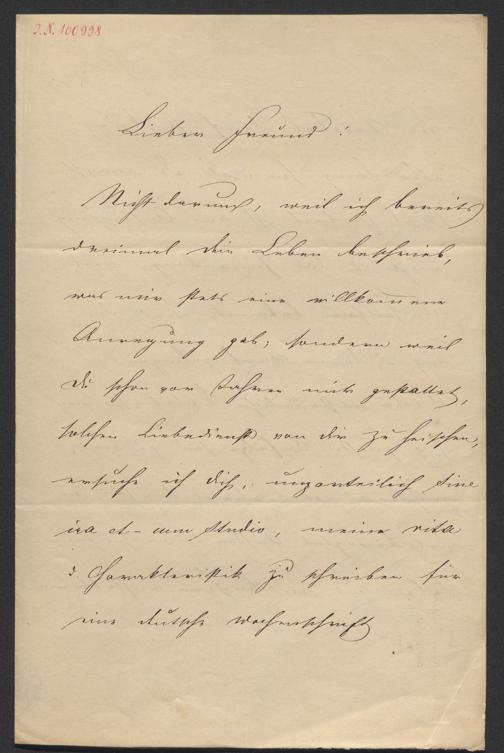 J.N. 100998
Lieber Freund!
Nicht darum, weil ich bereits
dreimal dein Leben beschrieb,
was mir stets eine willkommene
Anregung gab; sondern weil
Du schon vor Jahren mir gestattet,
solchen Liebesdienst von dir zu heischen,
ersuche ich dich, unparteilich sine
ira et – cum studio, meine vita
& Charakteristik zu schreiben für
eine deutsche Wochenschrift